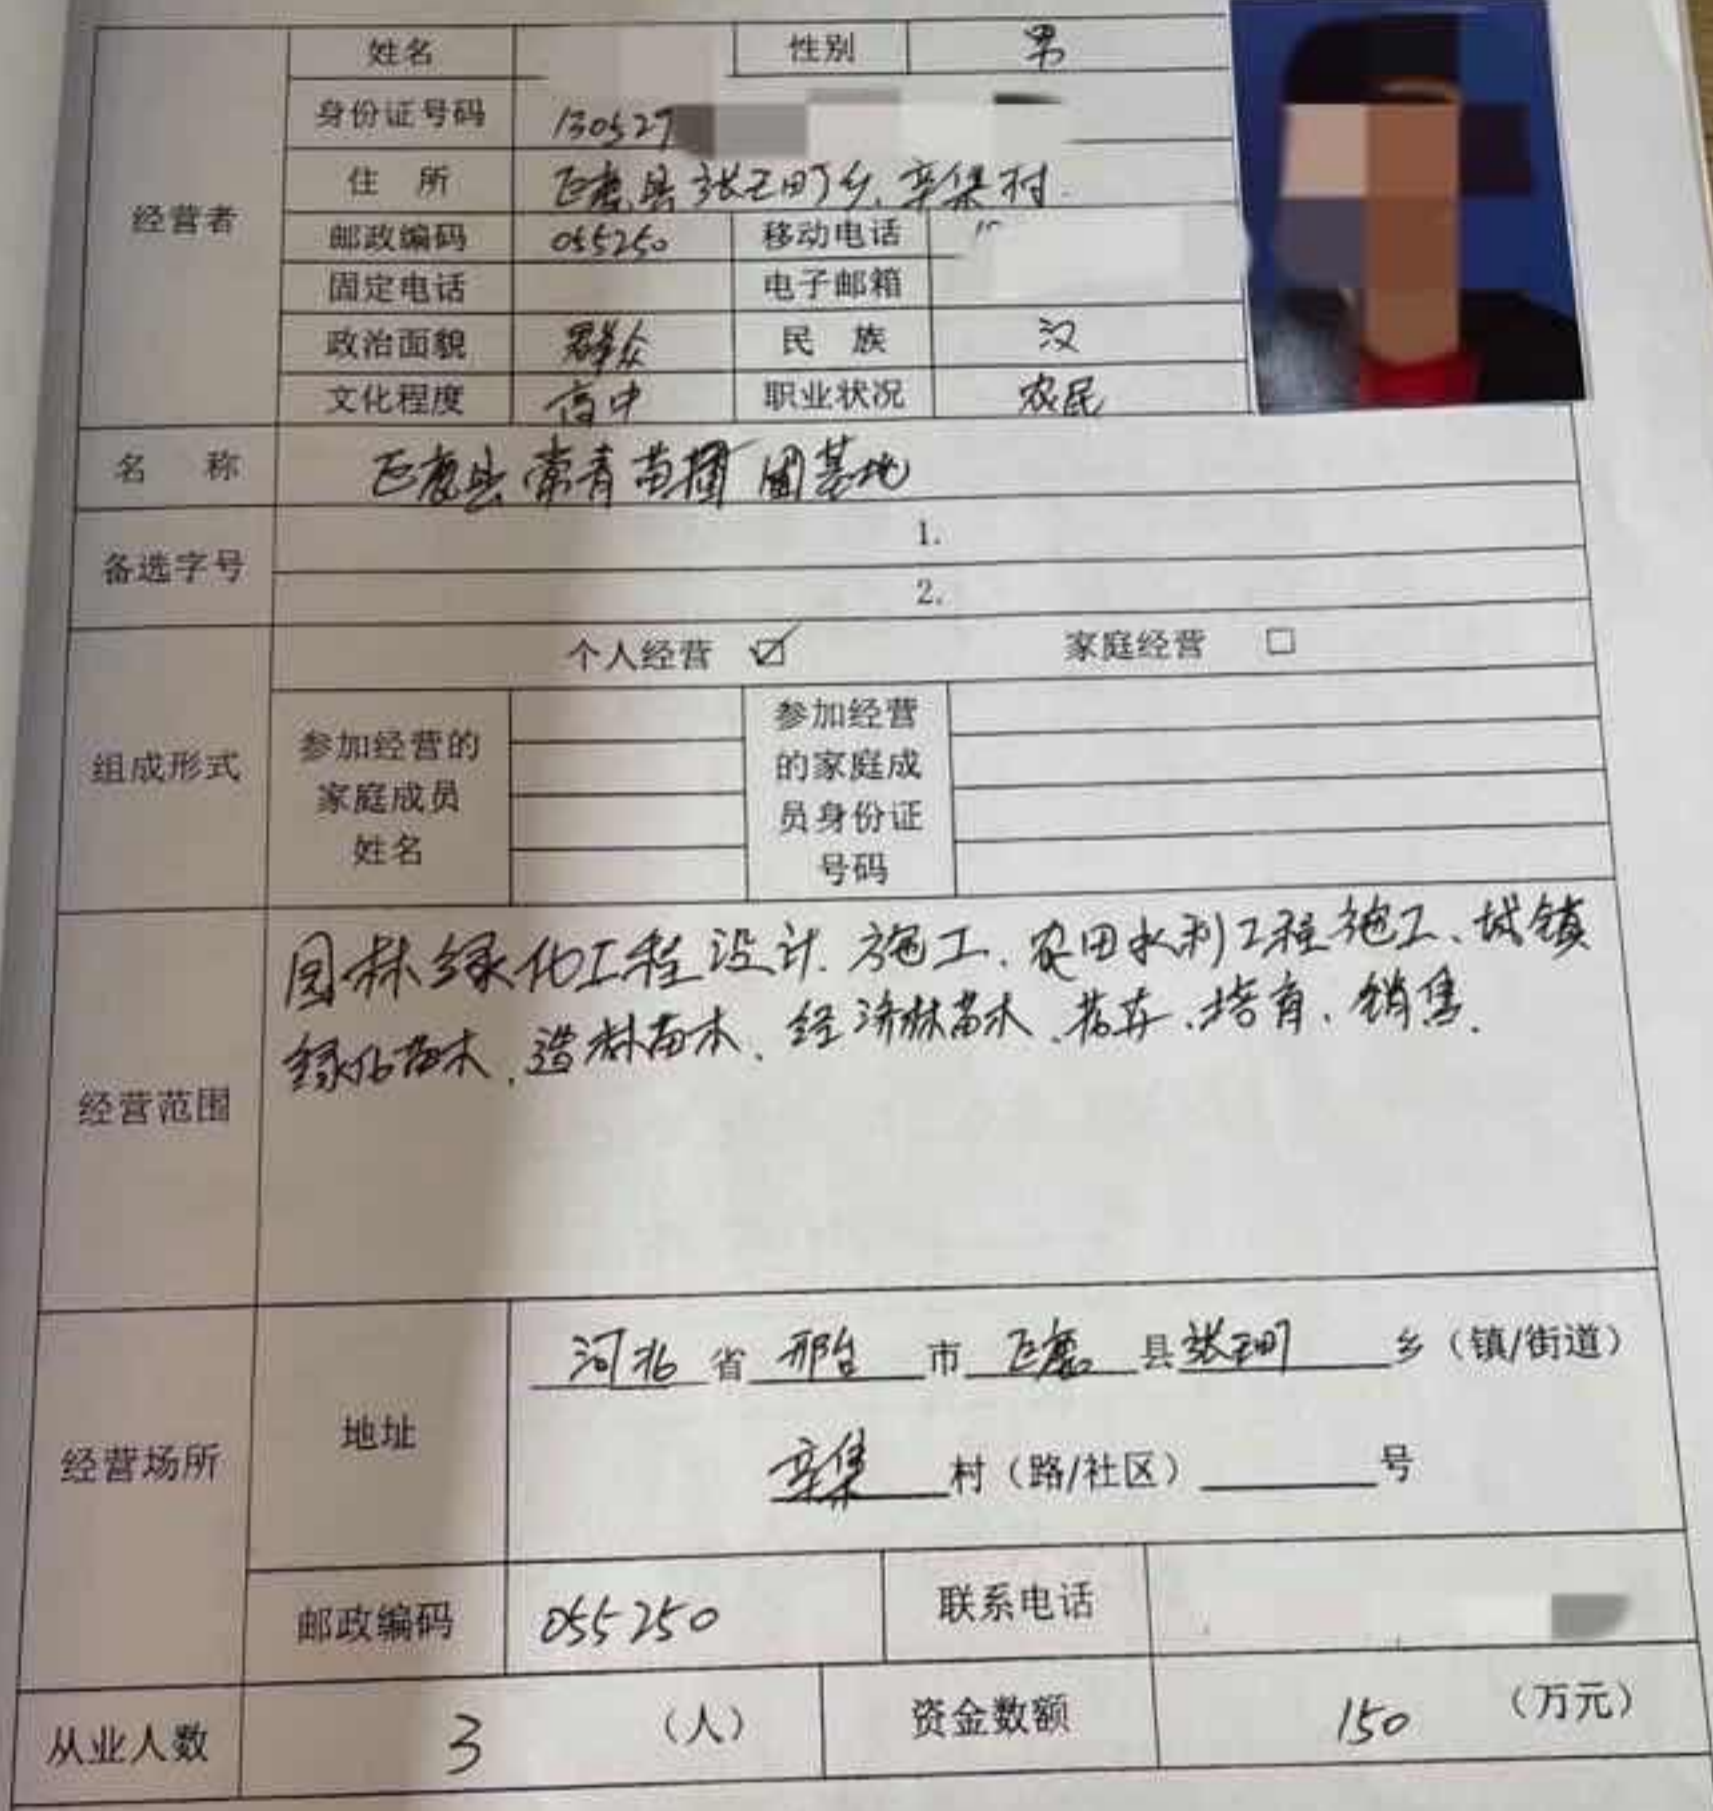 姓名 性别 男
身份证号码 130527
住 所 巨鹿县张王疃乡、辛集村.
经营者
邮政编码 055250 移动电话
固定电话 电子邮箱
政治面貌 群众 民 族 汉
文化程度 高中 职业状况 农民
名 称 巨鹿县常青苗圃基地
备选字号 1.
2.
个人经营 ☑ 家庭经营 □
组成形式
参加经营的
家庭成员
姓名
参加经营
的家庭成
员身份证
号码
园林绿化工程设计、施工、农田水利工程施工、城镇
绿化苗木、造林苗木、经济林苗木、花卉、培育、销售.
经营范围
河北 省 邢台 市 巨鹿 县 张王疃 乡（镇/街道）
经营场所 地址
辛集 村（路/社区） 号
邮政编码 055250 联系电话
从业人数 3 （人） 资金数额 150 （万元）